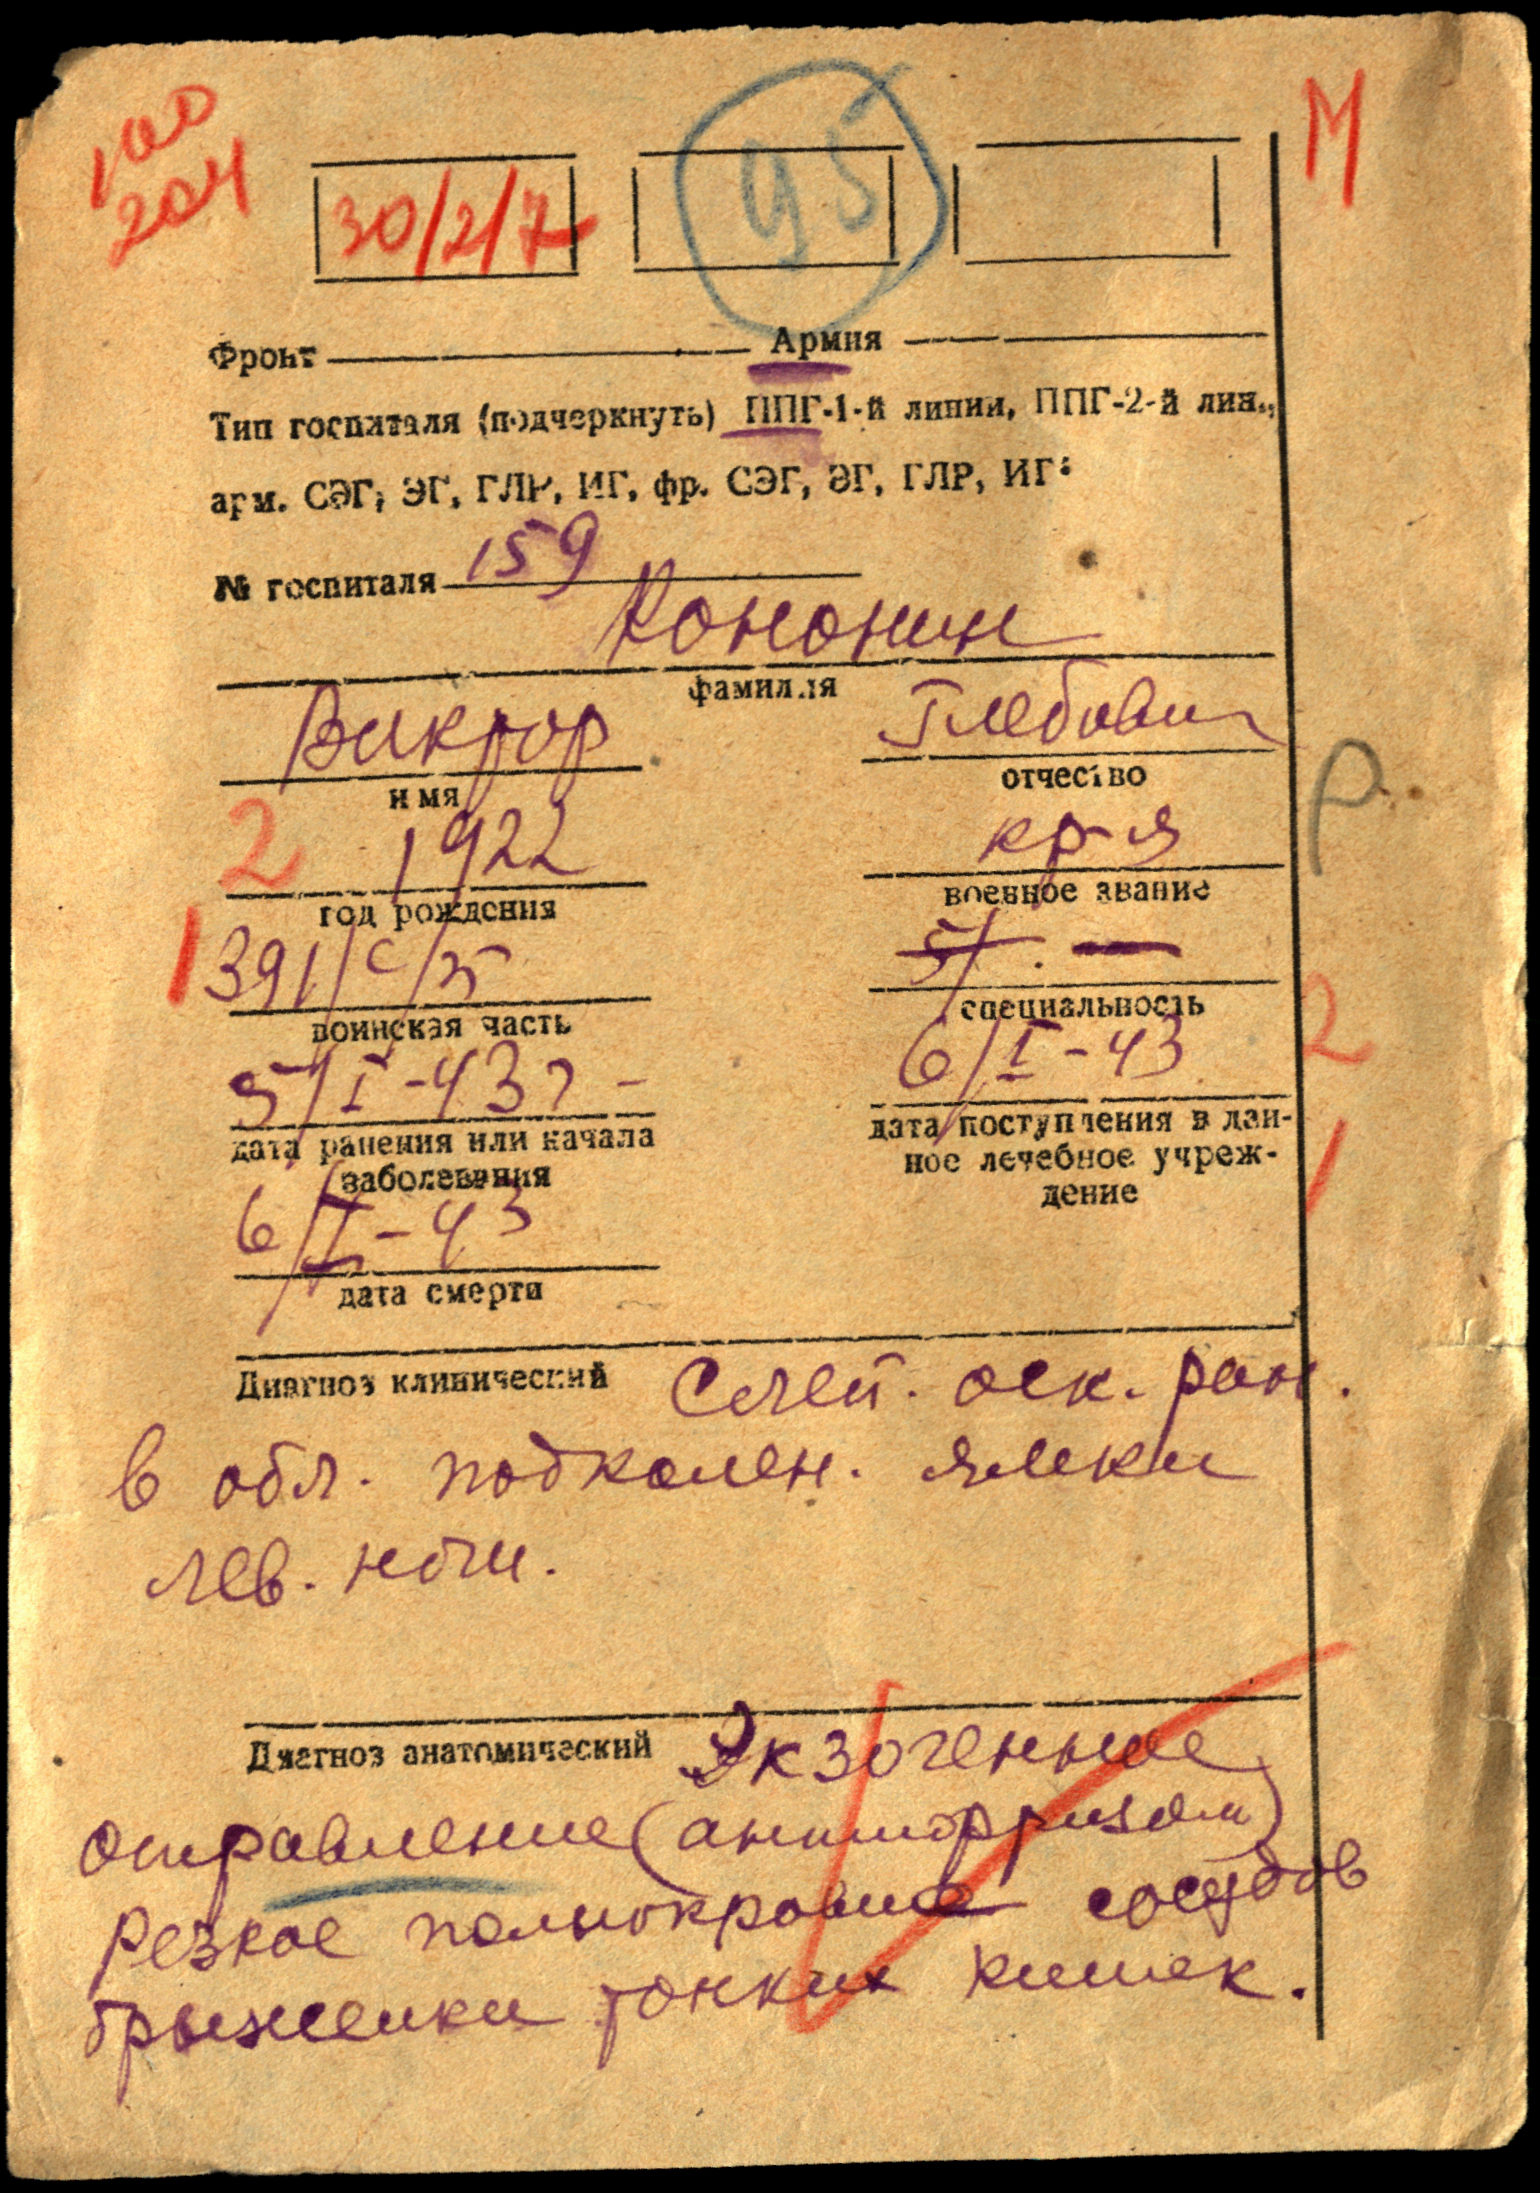 100
204
М
30/2/7
95
Фронт Армия
Тип госпиталя (подчеркнуть) ППГ-1-й линии, ППГ-2-й лин.,
арм. СЭГ, ЭГ, ГЛР, ИГ, фр. СЭГ, ЭГ, ГЛР, ИГ.
№ госпиталя 159
Кононин
фамилия
Виктор Глебович
имя отчество
2 1922 кр-я
год рождения военное звание
1 391/с/п 5/ —
воинская часть специальность
5/I-43 6/I-43 2
дата ранения или начала заболевания
дата поступления в дан-
ное лечебное учреж-
дение
1
6/I-43
дата смерти
Диагноз клинический Слеп. оск. ран.
в обл. подколен. ямки
лев. ноги.
Диагноз анатомический Экзогенное
отравление (антифризом)
Резкое полнокровие сосудов
брыжейки тонких кишек.